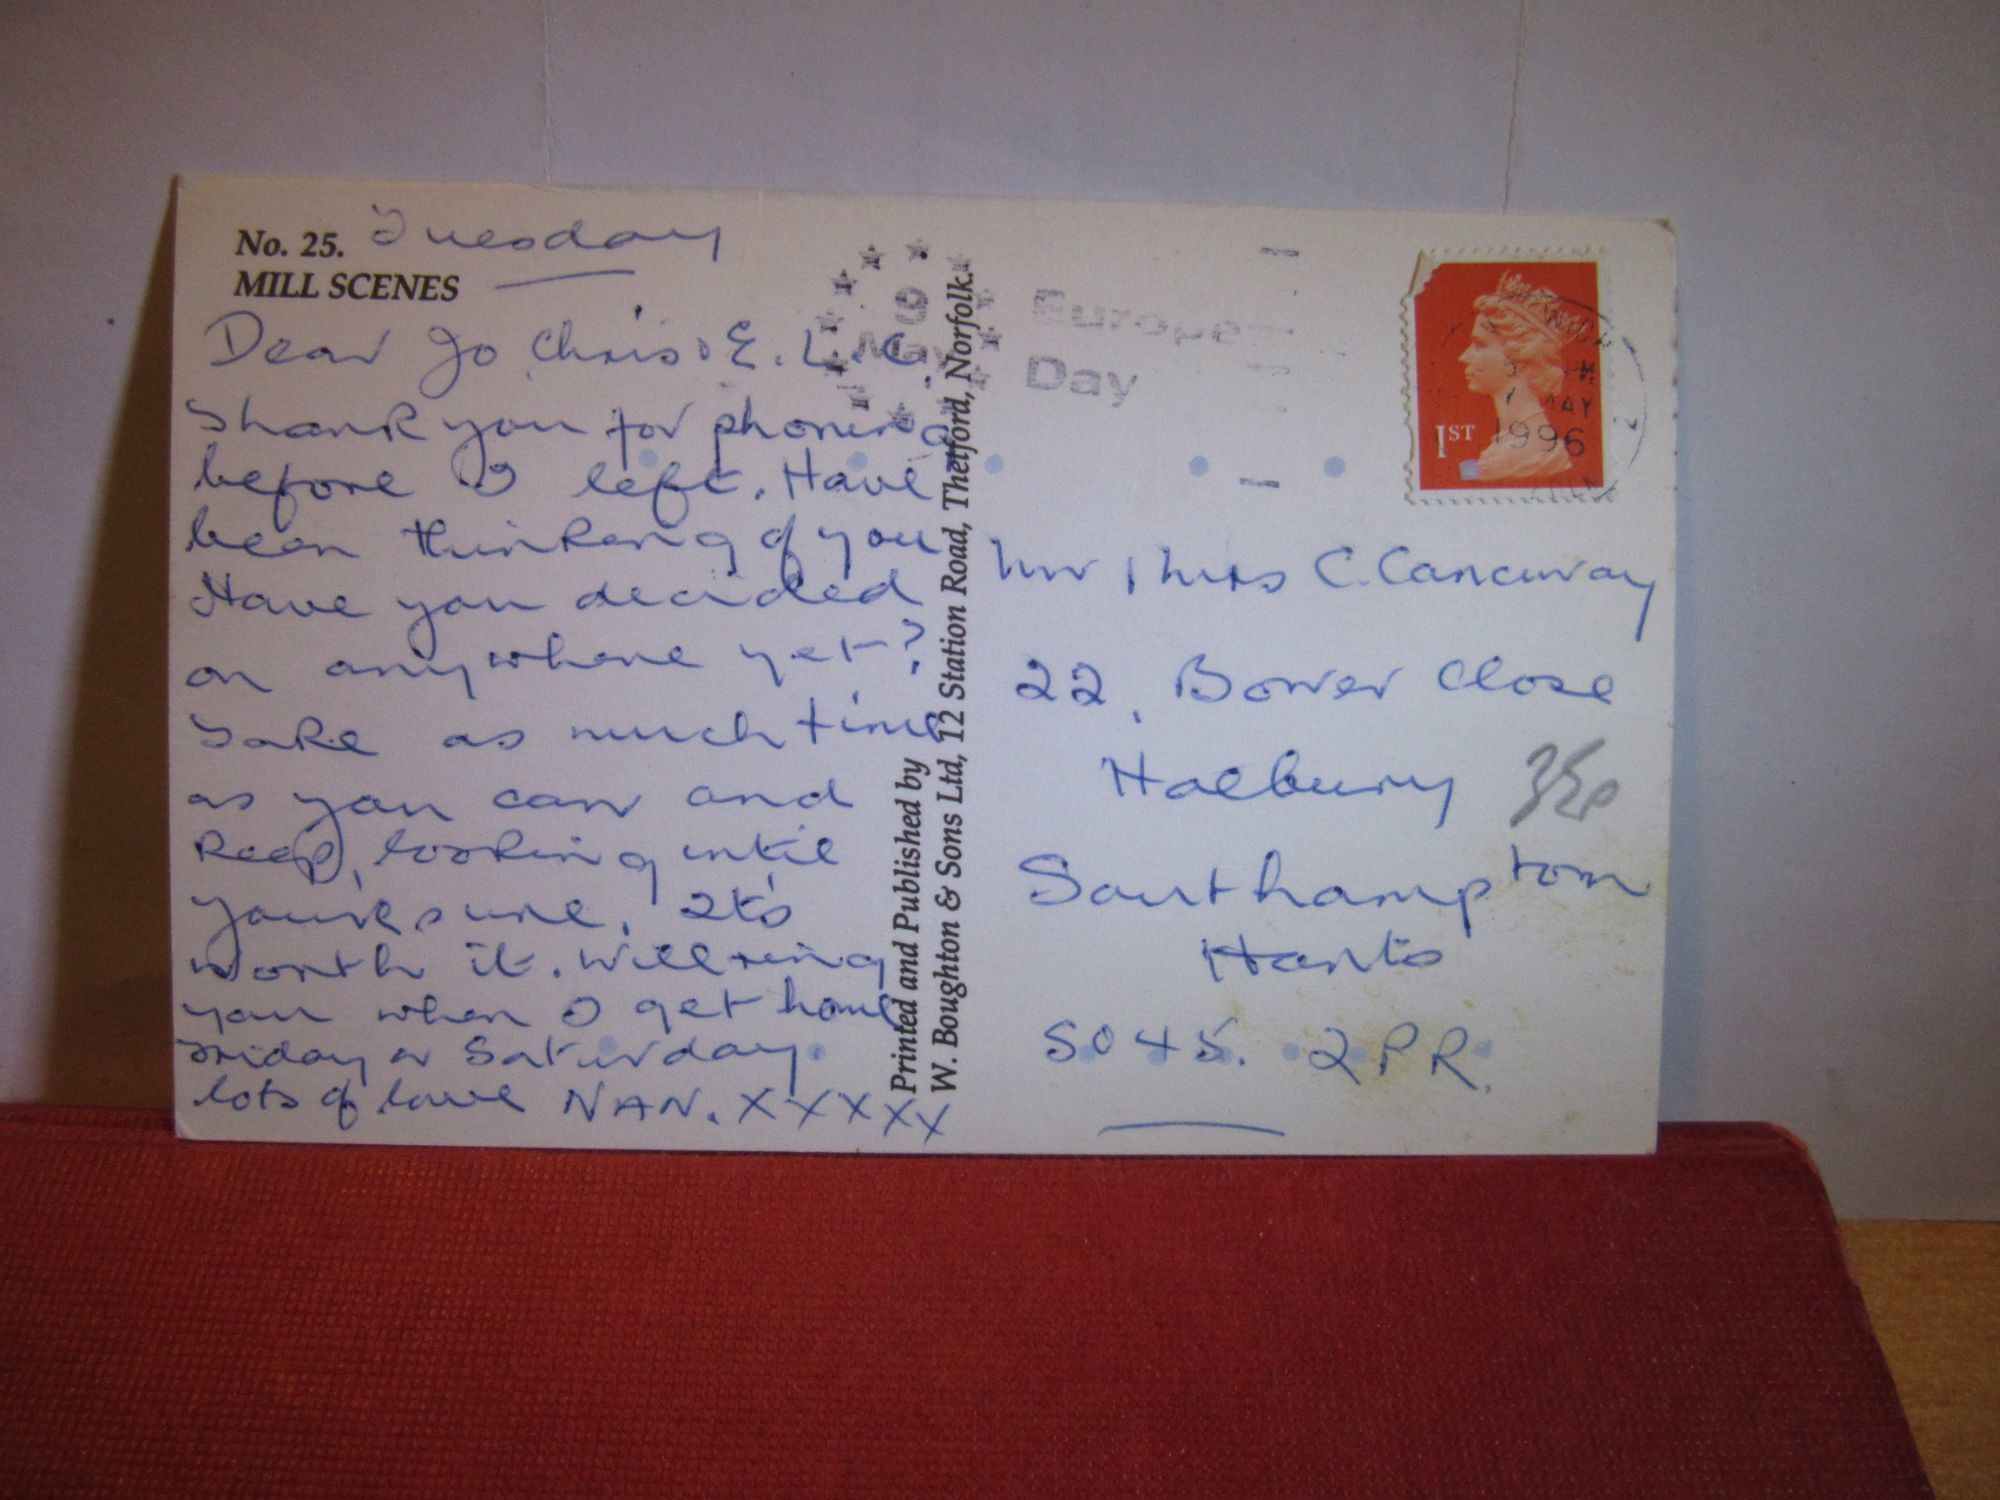 No. 25.
MILL SCENES
Tuesday
Dear Jo Chris & E. L. C.
Thank you for phoning
before I left. Have
been thinking of you
Have you decided
on anywhere yet?
Take as much time
as you can and
keep looking until
you're sure. It's
worth it. Will ring
you when I get home
Friday or Saturday.
lots of love NAN. XXXXX
Printed and Published by
W. Boughton & Sons Ltd, 12 Station Road, Thetford, Norfolk.
9
May
European
Day
1ST
MAY
1996
Mr & Mrs C.
22, Bower Close
Holbury
Southampton
Hants
SO45. 2PR.